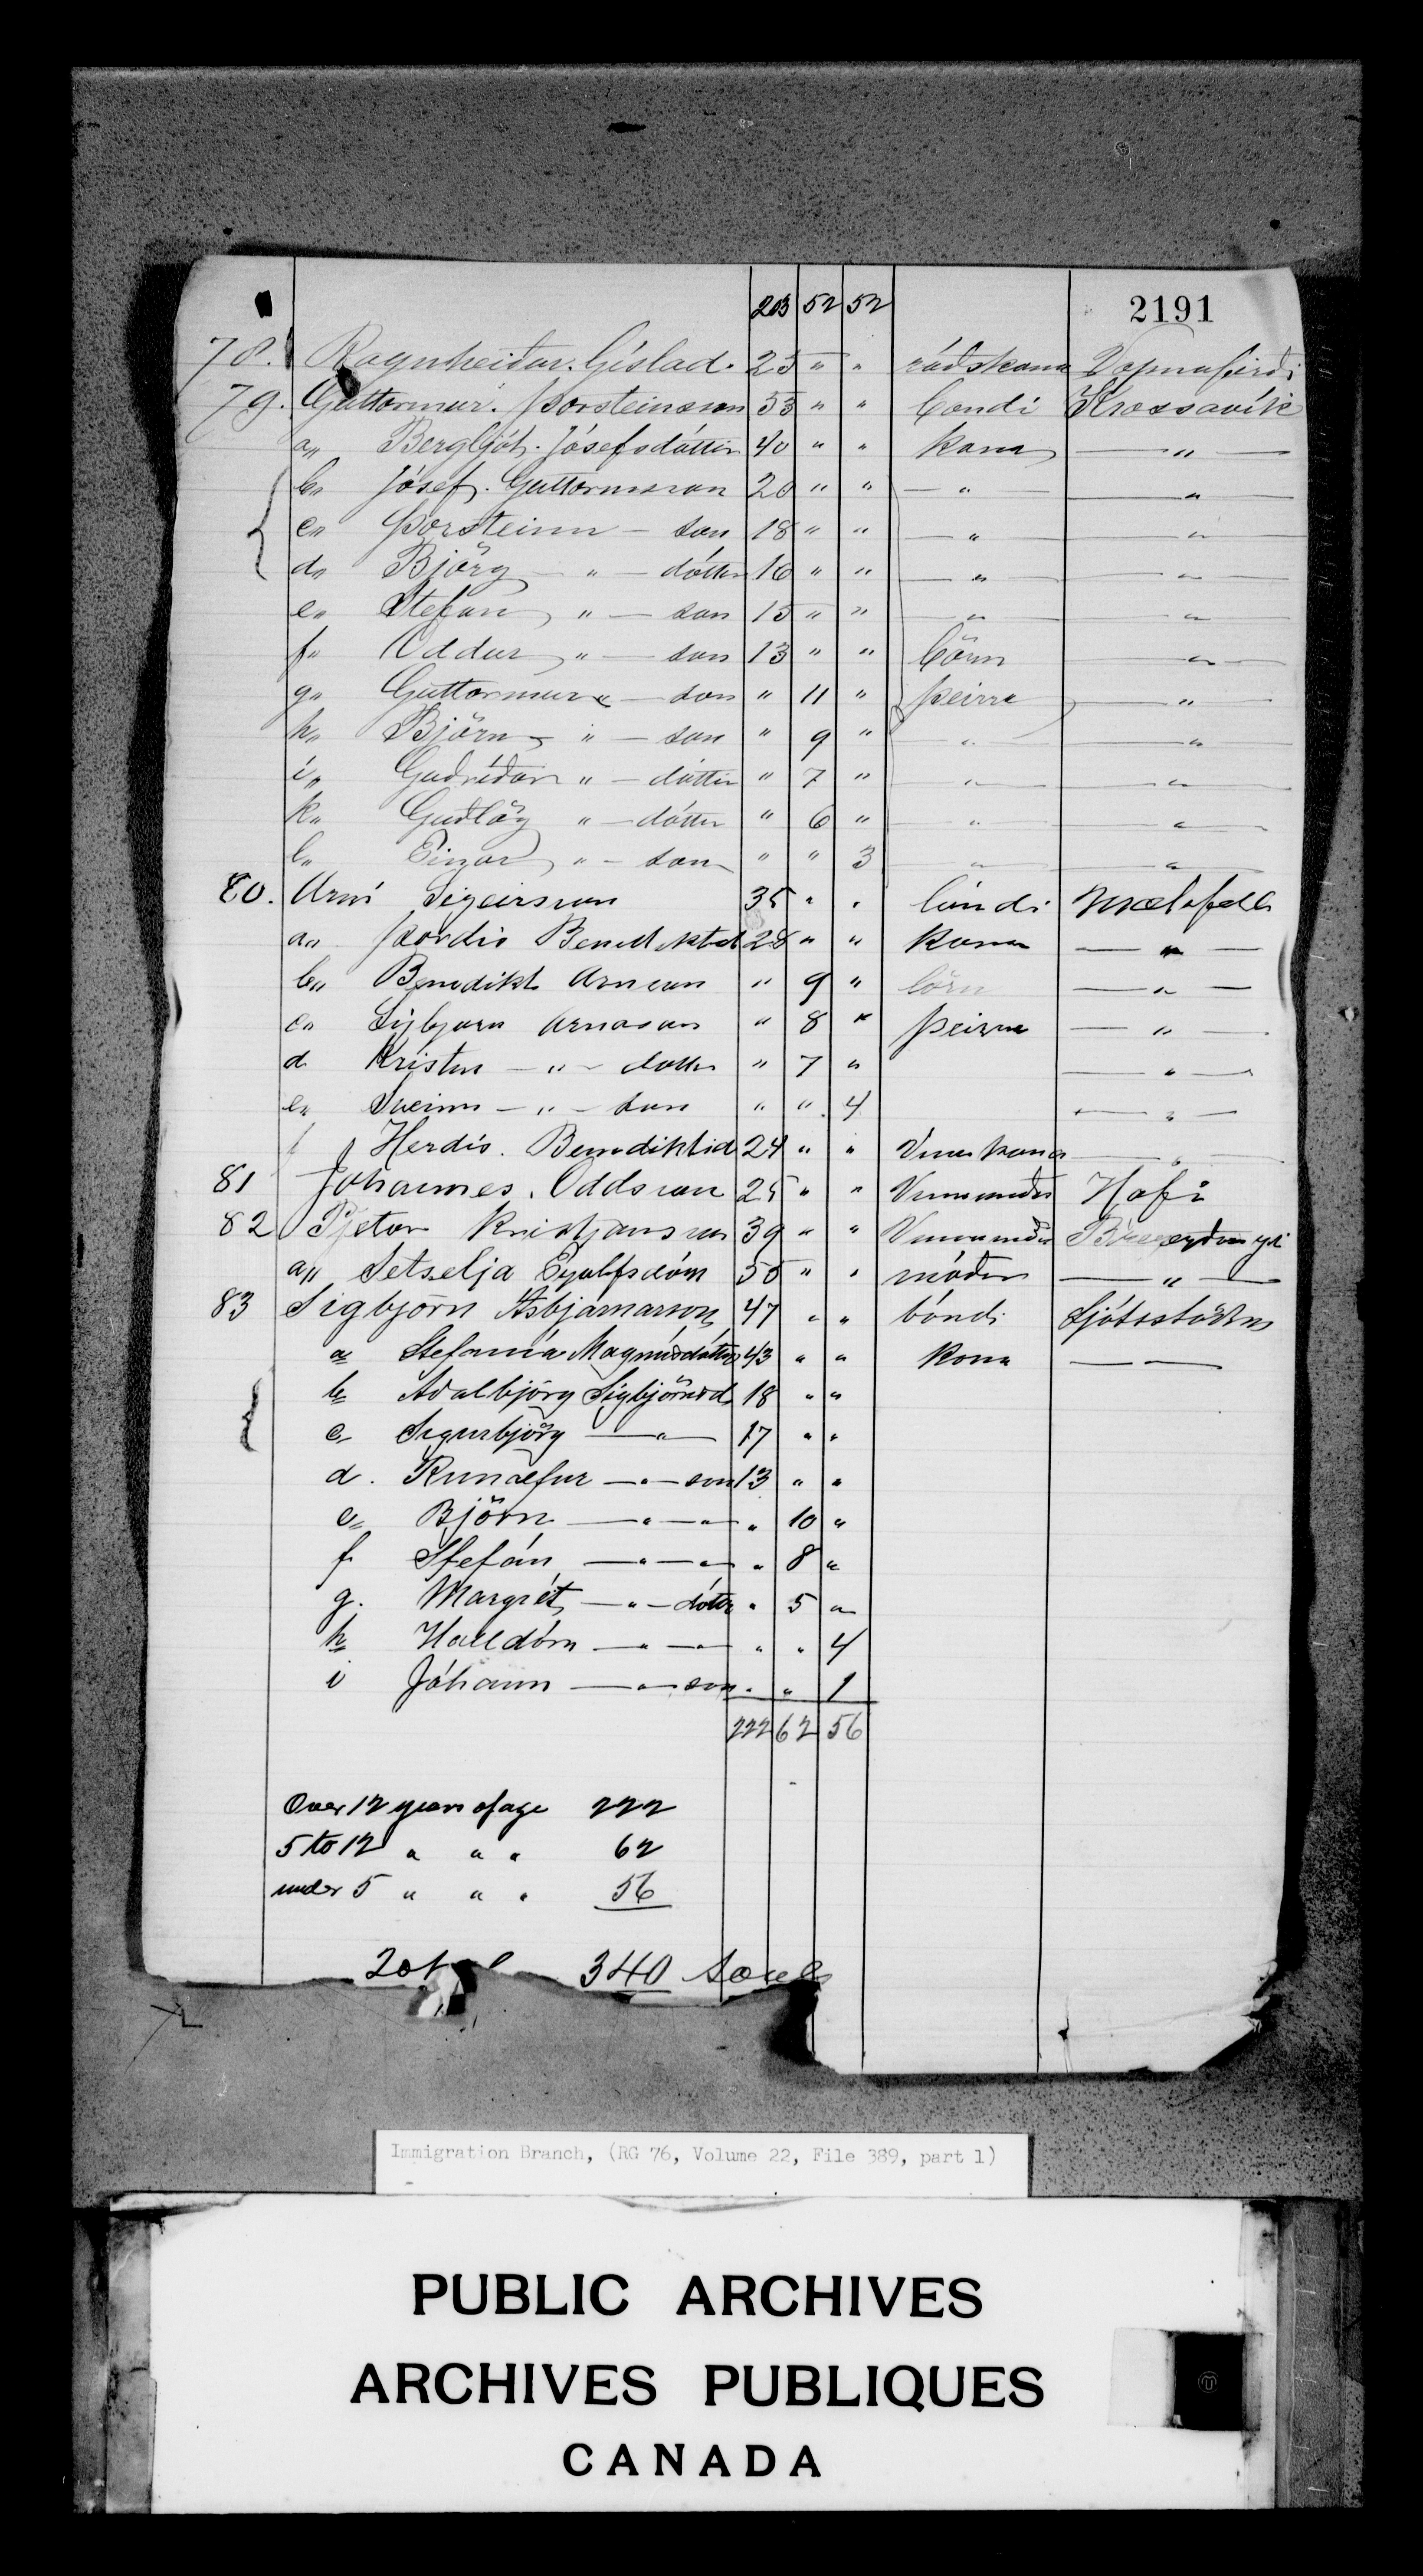 203 52 52 2191
78. Ragnheiður. Gíslad. 25 " " ráðskona Vopnafirði
79. Guttormur. Þorsteinsson 53 " " bondi Krossavík
a„ Bergljót. Jósefsdóttir 40 " " kona — " —
b„ Jósef. Guttormsson 20 " " — " — — " —
c„ Þorsteinn — son 18 " " — " — — " —
d„ Björg " — dóttir 16 " " — " — — " —
e„ Stefán " — son 15 " " — " — — " —
f„ Oddur " — son 13 " " börn — " —
g„ Guttormur " — son " 11 " þeirra — " —
h„ Björn " — son " 9 " — " — — " —
i„ Guðríður " — dóttir " 7 " — " — — " —
k„ Guðlög " — dóttir " 6 " — " — — " —
l„ Einar " — son " " 3 — " — — " —
80. Arni Sigeirsson 35 " " bóndi Mælefell
a„ Þordis Benediktsd 28 " " Kona — " —
b„ Benedikt Arnason " 9 " börn — " —
c„ Sigbjorn Arnason " 8 " þeirra — " —
d Kristin — " — dottir " 7 " — " —
e„ Sveinn — " — son " " 4 — " —
f Herdís. Benediktsd 24 " " Vinnukona — " —
81 Johannes. Oddsson 25 " " Vinnumaður Hofi
82 Pjetur Kristjansson 39 " " Vinnumaður
a„ Setselja Eyolfsdóttir 55 " " móðir — " —
83 Sigbjörn Asbjarnarson 47 " " bóndi Ljótsstöðum
a Stefanía Magnúsdóttir 43 " " Kona — —
b Aðalbjörg Sigbjörnsd 18 " "
c Sigurbjörg — " — 17 " "
d. Runólfur — " — son 13 " "
e Björn — " — " — " 10 "
f Stefán — " — " — " 8 "
g. Margrét — " — dóttir " 5 "
h Halldóra — " — — " " 4
i Jóhann — " — son " " 1
222 62 56
Over 12 years of age 222
5 to 12 " " " 62
under 5 " " " 56
Total 340 Souls
Immigration Branch, (RG 76, Volume 22, File 389, part 1)
PUBLIC ARCHIVES
ARCHIVES PUBLIQUES
CANADA